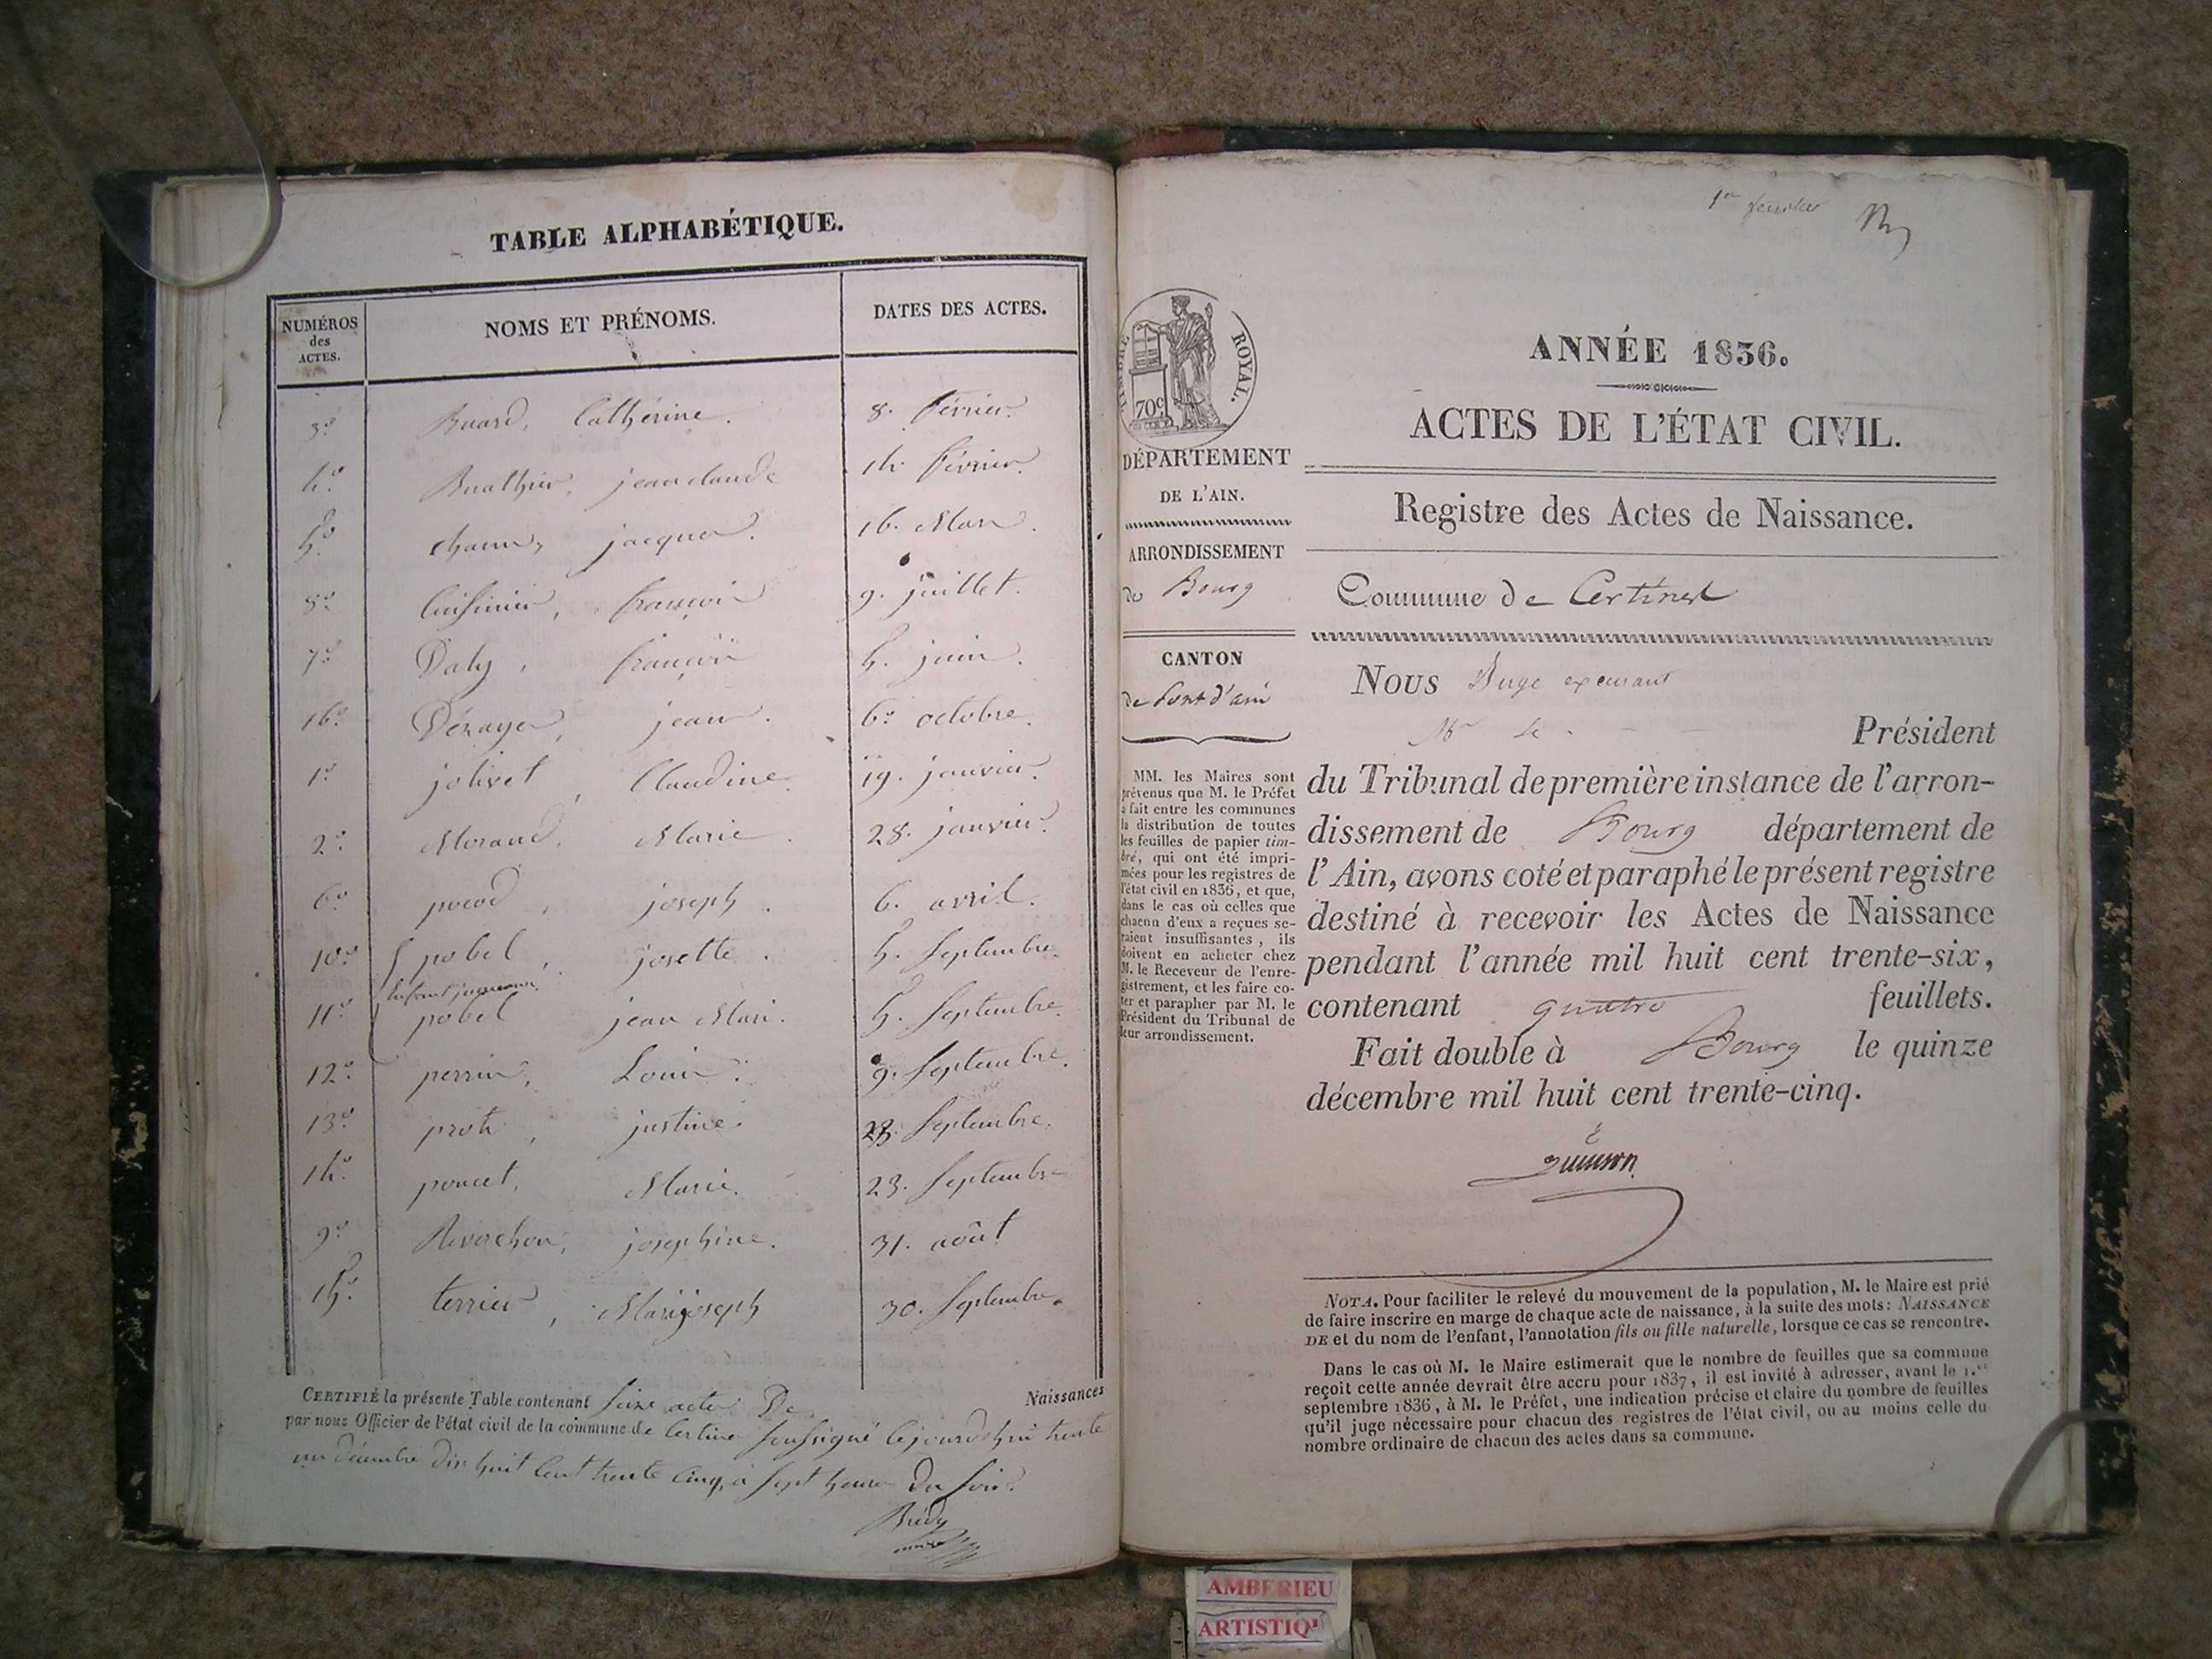 TABLE ALPHABÉTIQUE.
NUMÉROS
des
ACTES.
NOMS ET PRÉNOMS.
DATES DES ACTES.
3º Buard, Cathérine. 8. février.
4º Buathier, jean claude 14. février.
5º jacques. 16. Mars.
8º Cuisinier, françois 9. juillet.
7º Daly, françois 5. juin.
16º jean. 6º octobre.
1º jolivet, Claudine. 19. janvier.
2º Morand, Marie. 28. janvier.
6º joseph. 6. avril.
10º pobel, josette. 5. Septembre.
Enfants jumeaux
11º pobel jean Mari. 5. Septembre.
12º perrin, Louis. 9. Septembre.
13º justine. Septembre.
14º poncet, Marie. 23. Septembre
9º Revorchon, josephine. 31. août
15º terrier, Marijoseph 30. Septembre.
CERTIFIÉ la présente Table contenant Seize actes De Naissances
par nous Officier de l'état civil de la commune de Certines soussigné cejourd'hui trente
un décembre dix huit Cent trente Cinq, à Sept heures Du Soir.
1er feuillet
TIMBRE ROYAL.
70c
DÉPARTEMENT
DE L'AIN.
ARRONDISSEMENT
de Bourg
CANTON
de Pont d'ain
MM. les Maires sont
prévenus que M. le Préfet
a fait entre les communes
la distribution de toutes
les feuilles de papier tim-
bré, qui ont été impri-
mées pour les registres de
l'état civil en 1836, et que,
dans le cas où celles que
chacun d'eux a reçues se-
raient insuffisantes, ils
doivent en acheter chez
M. le Receveur de l'enre-
gistrement, et les faire co-
ter et parapher par M. le
Président du Tribunal de
leur arrondissement.
ANNÉE 1836.
ACTES DE L'ÉTAT CIVIL.
Registre des Actes de Naissance.
Commune de Certines
Nous Juge
Mr le Président
du Tribunal de première instance de l'arron-
dissement de Bourg département de
l'Ain, avons coté et paraphé le présent registre
destiné à recevoir les Actes de Naissance
pendant l'année mil huit cent trente-six,
contenant quatre feuillets.
Fait double à Bourg le quinze
décembre mil huit cent trente-cinq.
NOTA. Pour faciliter le relevé du mouvement de la population, M. le Maire est prié
de faire inscrire en marge de chaque acte de naissance, à la suite des mots: NAISSANCE
DE et du nom de l'enfant, l'annotation fils ou fille naturelle, lorsque ce cas se rencontre.
Dans le cas où M. le Maire estimerait que le nombre de feuilles que sa commune
reçoit cette année devrait être accru pour 1837, il est invité à adresser, avant le 1.er
septembre 1836, à M. le Préfet, une indication précise et claire du nombre de feuilles
qu'il juge nécessaire pour chacun des registres de l'état civil, ou au moins celle du
nombre ordinaire de chacun des actes dans sa commune.
AMBERIEU
ARTISTIQU